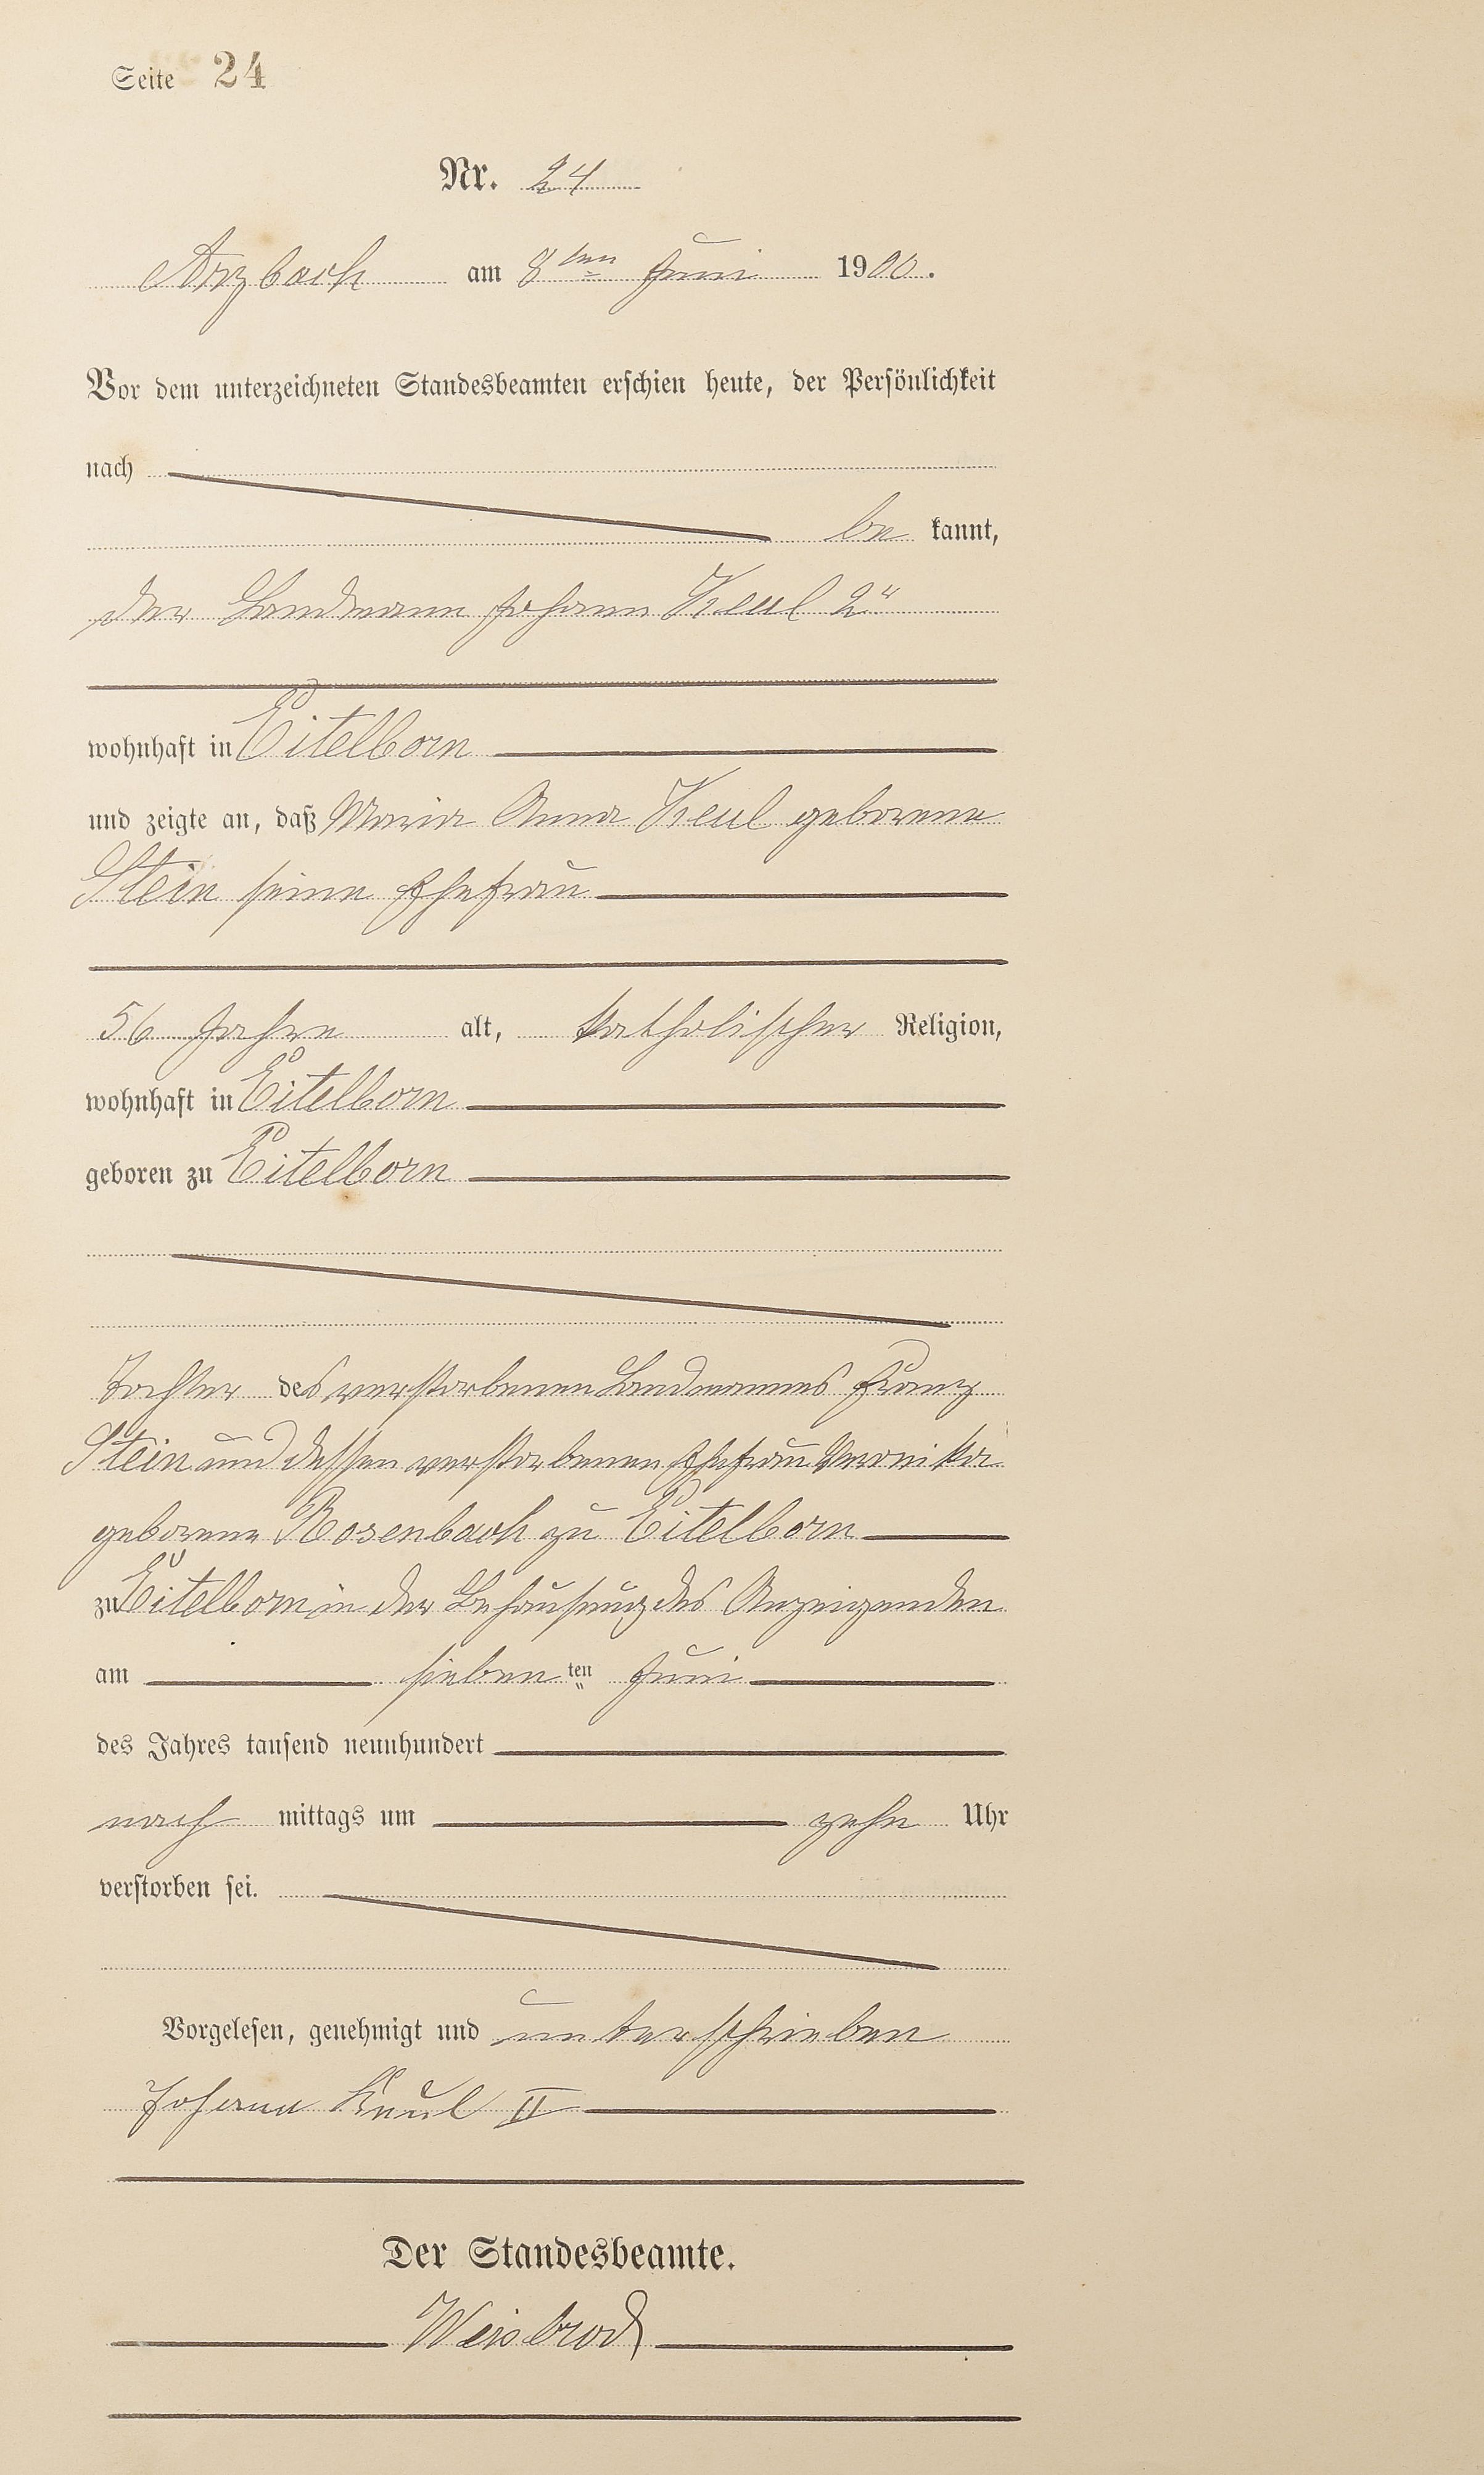 Seite 24
Nr. 24
Arzbach am 8ten Juni 1900.
Vor dem unterzeichneten Standesbeamten erschien heute, der Persönlichkeit
nach
be kannt,
der Landmann Johann Keul 2r
wohnhaft in Eitelborn
und zeigte an, daß Maria Anna Keul geborene
Stein seine Ehefrau
56 Jahre alt, katholischer Religion,
wohnhaft in Eitelborn
geboren zu Eitelborn
Tochter des verstorbenen Landmannes Franz
Stein und dessen verstorbenen Ehefrau Veronika
geborene Rosenbach zu Eitelborn
zu Eitelborn in der Behausung des Anzeigenden
am sieben ten Juni
des Jahres tausend neunhundert
nach mittags um zehn Uhr
verstorben sei.
Vorgelesen, genehmigt und unterschrieben
Johann Keul II
Der Standesbeamte.
Weisbrod